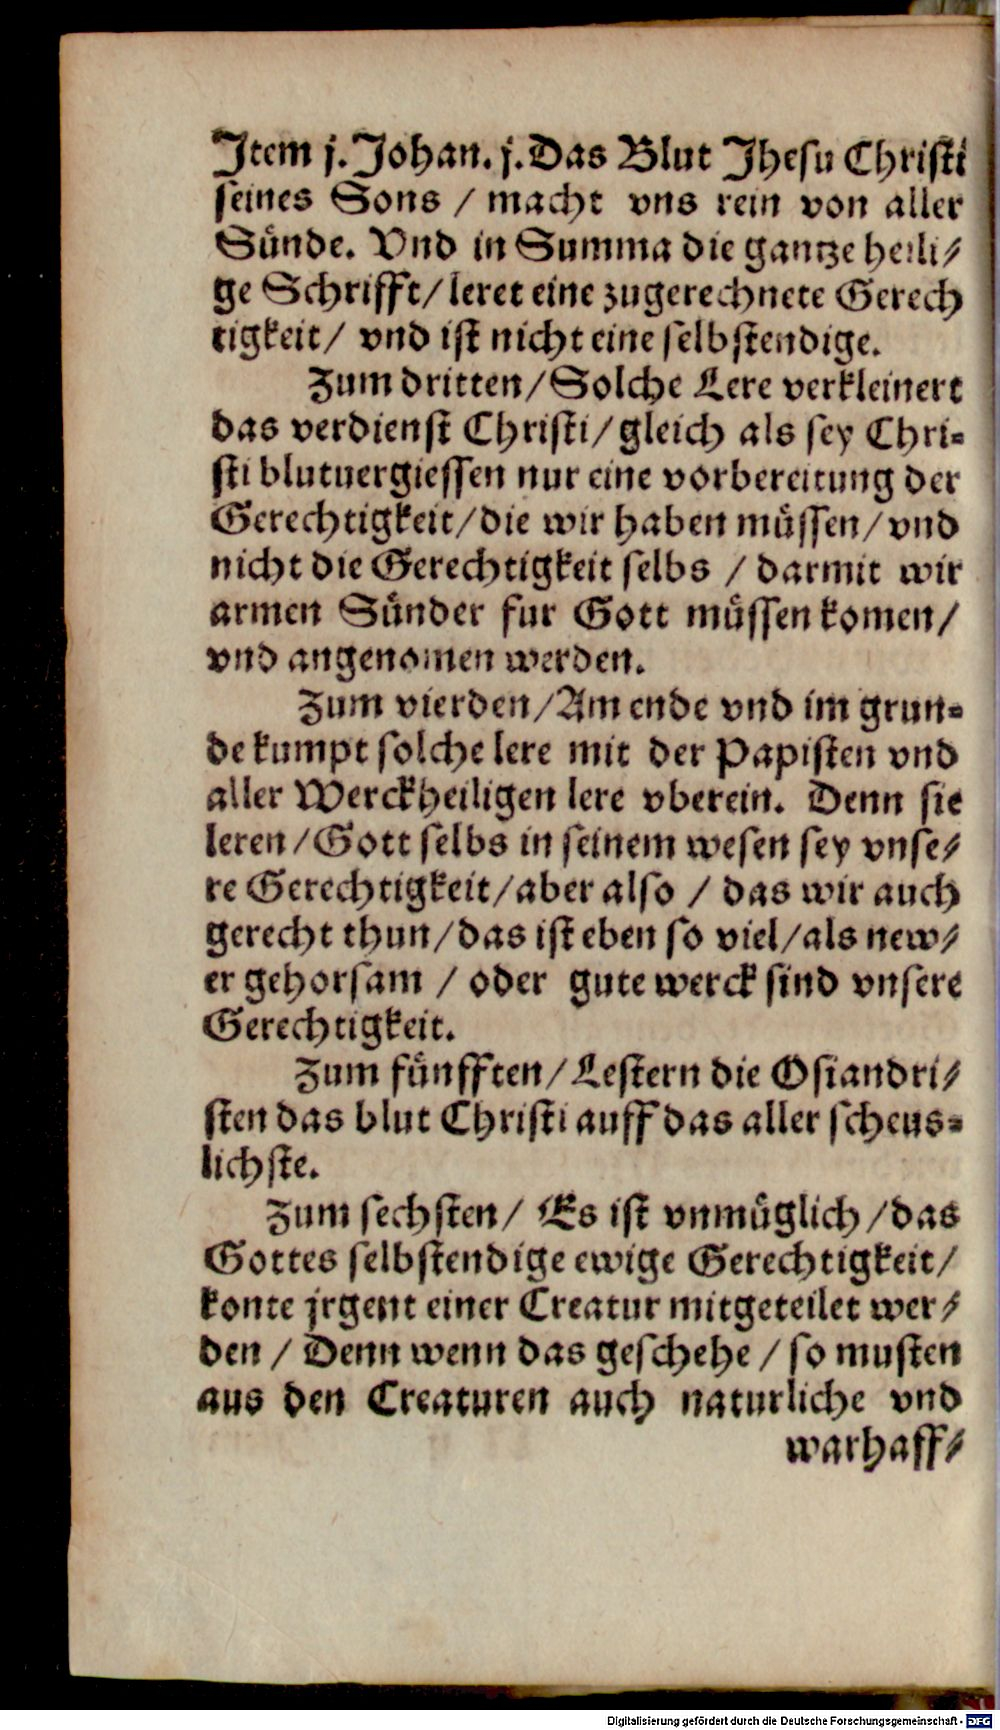 Item j. Johan. j. Das Blut Jhesu Christi
seines Sons / macht vns rein von aller
Sünde. Vnd in Summa die gantze heili⸗
ge Schrifft / leret eine zugerechnete Gerech
tigkeit / vnd ist nicht eine selbstendige.
Zum dritten / Solche Lere verkleinert
das verdienst Christi / gleich als sey Chri⸗
sti blutuergiessen nur eine vorbereitung der
Gerechtigkeit / die wir haben müssen / vnd
nicht die Gerechtigkeit selbs / darmit wir
armen Sünder fur Gott müssen komen /
vnd angenomen werden.
Zum vierden / Am ende vnd im grun⸗
de kumpt solche lere mit der Papisten vnd
aller Werckheiligen lere vberein. Denn sie
leren / Gott selbs in seinem wesen sey vnse⸗
re Gerechtigkeit / aber also / das wir auch
gerecht thun / das ist eben so viel / als new⸗
er gehorsam / oder gute werck sind vnsere
Gerechtigkeit.
Zum fünfften / Lestern die Osiandri⸗
sten das blut Christi auff das aller scheus⸗
lichste.
Zum sechsten / Es ist vnmüglich / das
Gottes selbstendige ewige Gerechtigkeit /
konte jrgent einer Creatur mitgeteilet wer⸗
den / Denn wenn das geschehe / so musten
aus den Creaturen auch naturliche vnd
warhaff⸗
Digitalisierung gefördert durch die Deutsche Forschungsgemeinschaft - DFG